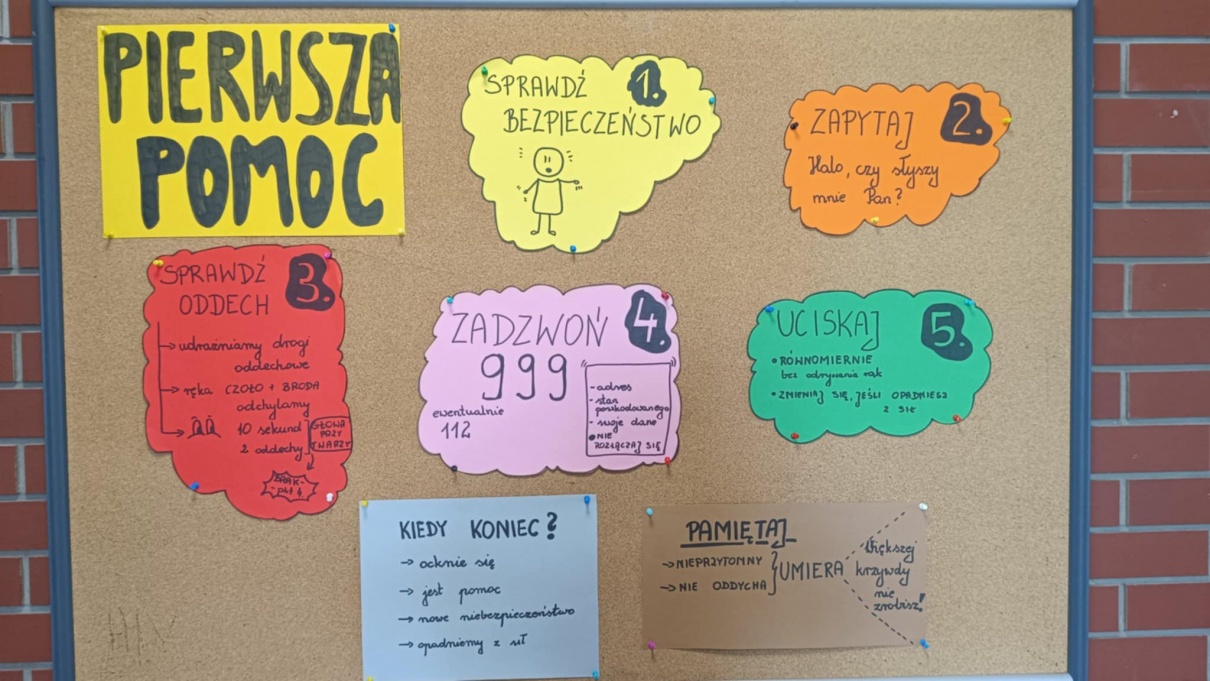 PIERWSZA
POMOC
SPRAWDŹ 1.
BEZPIECZEŃSTWO
ZAPYTAJ 2.
Halo, czy słyszy
mnie Pan?
SPRAWDŹ 3.
ODDECH
→ udrażniamy drogi
oddechowe
→ ręka CZOŁO + BRODA
odchylamy
→ 10 sekund
2 oddechy
GŁOWA
PRZY
TWARZY
BRAK -
ZADZWOŃ 4.
999
ewentualnie
112
- adres
- stan
poszkodowanego
- swoje dane
• NIE
ROZŁĄCZAJ SIĘ
UCISKAJ 5.
• RÓWNOMIERNIE
bez odrywania rąk
• ZMIENIAJ SIĘ, JEŚLI OPADNIESZ
Z SIŁ
KIEDY KONIEC?
→ ocknie się
→ jest pomoc
→ nowe niebezpieczeństwo
→ opadniemy z sił
PAMIĘTAJ
→ NIEPRZYTOMNY
→ NIE ODDYCHA
UMIERA
Większej
krzywdy
nie
zrobisz!